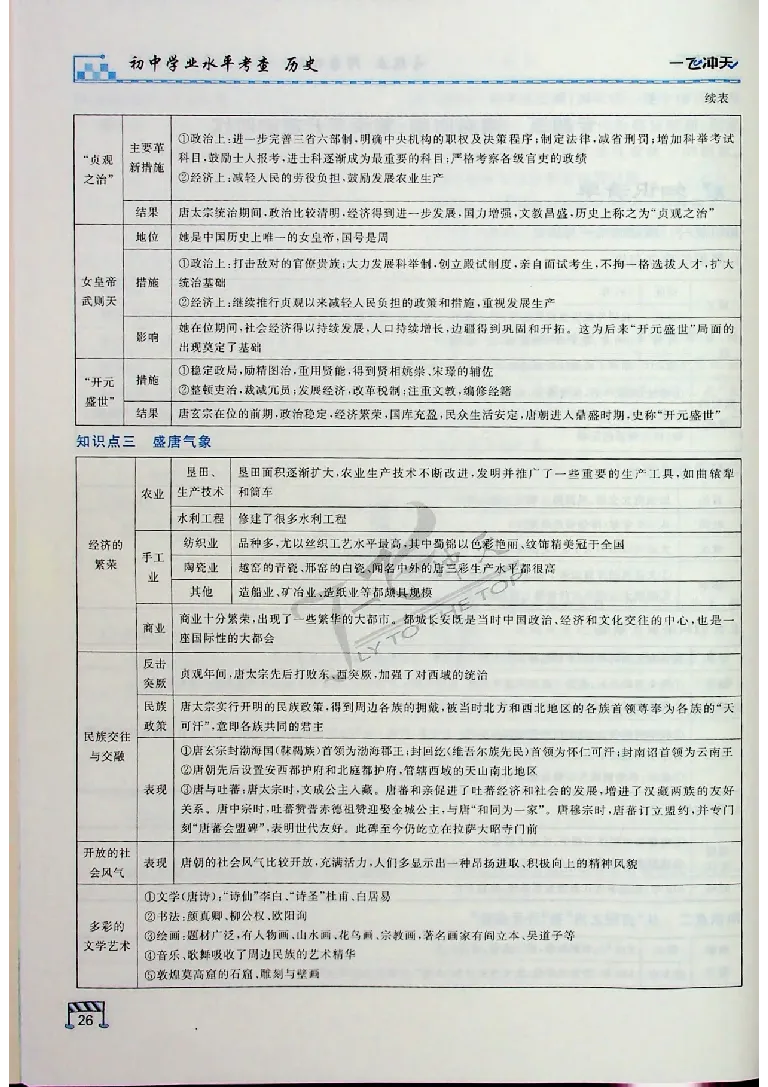 初中学业水平考查 历史
一飞冲天
续表
“贞观
之治”
主要革
新措施
①政治上:进一步完善三省六部制,明确中央机构的职权及决策程序;制定法律,减省刑罚;增加科举考试
科目,鼓励士人报考,进士科逐渐成为最重要的科目;严格考察各级官吏的政绩
②经济上:减轻人民的劳役负担,鼓励发展农业生产
结果
唐太宗统治期间,政治比较清明,经济得到进一步发展,国力增强,文教昌盛,历史上称之为“贞观之治”
女皇帝
武则天
地位
她是中国历史上唯一的女皇帝,国号是周
措施
①政治上:打击敌对的官僚贵族;大力发展科举制,创立殿试制度,亲自面试考生,不拘一格选拔人才,扩大
统治基础
②经济上:继续推行贞观以来减轻人民负担的政策和措施,重视发展生产
影响
她在位期间,社会经济得以持续发展,人口持续增长,边疆得到巩固和开拓。这为后来“开元盛世”局面的
出现奠定了基础
“开元
盛世”
措施
①稳定政局,励精图治,重用贤能,得到贤相姚崇、宋璟的辅佐
②整顿吏治,裁减冗员;发展经济,改革税制;注重文教,编修经籍
结果
唐玄宗在位的前期,政治稳定,经济繁荣,国库充盈,民众生活安定,唐朝进入鼎盛时期,史称“开元盛世”
知识点三 盛唐气象
经济的
繁荣
农业
垦田、
生产技术
垦田面积逐渐扩大,农业生产技术不断改进,发明并推广了一些重要的生产工具,如曲辕犁
和筒车
水利工程
修建了很多水利工程
手工
业
纺织业
品种多,尤以丝织工艺水平最高,其中蜀锦以色彩艳丽、纹饰精美冠于全国
陶瓷业
越窑的青瓷、邢窑的白瓷、闻名中外的唐三彩生产水平都很高
其他
造船业、矿冶业、造纸业等都颇具规模
商业
商业十分繁荣,出现了一些繁华的大都市。都城长安既是当时中国政治、经济和文化交往的中心,也是一
座国际性的大都会
民族交往
与交融
反击
突厥
贞观年间,唐太宗先后打败东、西突厥,加强了对西域的统治
民族
政策
唐太宗实行开明的民族政策,得到周边各族的拥戴,被当时北方和西北地区的各族首领尊奉为各族的“天
可汗”,意即各族共同的君主
表现
①唐玄宗封渤海国(靺鞨族)首领为渤海郡王;封回纥(维吾尔族先民)首领为怀仁可汗;封南诏首领为云南王
②唐朝先后设置安西都护府和北庭都护府,管辖西域的天山南北地区
③唐与吐蕃:唐太宗时,文成公主入藏。唐蕃和亲促进了吐蕃经济和社会的发展,增进了汉藏两族的友好
关系。唐中宗时,吐蕃赞普赤德祖赞迎娶金城公主,与唐“和同为一家”。唐穆宗时,唐蕃订立盟约,并专门
刻“唐蕃会盟碑”,表明世代友好。此碑至今仍屹立在拉萨大昭寺门前
开放的社
会风气
表现
唐朝的社会风气比较开放,充满活力,人们多显示出一种昂扬进取、积极向上的精神风貌
多彩的
文学艺术
①文学(唐诗):“诗仙”李白、“诗圣”杜甫、白居易
②书法:颜真卿、柳公权、欧阳询
③绘画:题材广泛,有人物画、山水画、花鸟画、宗教画,著名画家有阎立本、吴道子等
④音乐、歌舞吸收了周边民族的艺术精华
⑤敦煌莫高窟的石窟,雕刻与壁画
FLY TO THE TOP
26